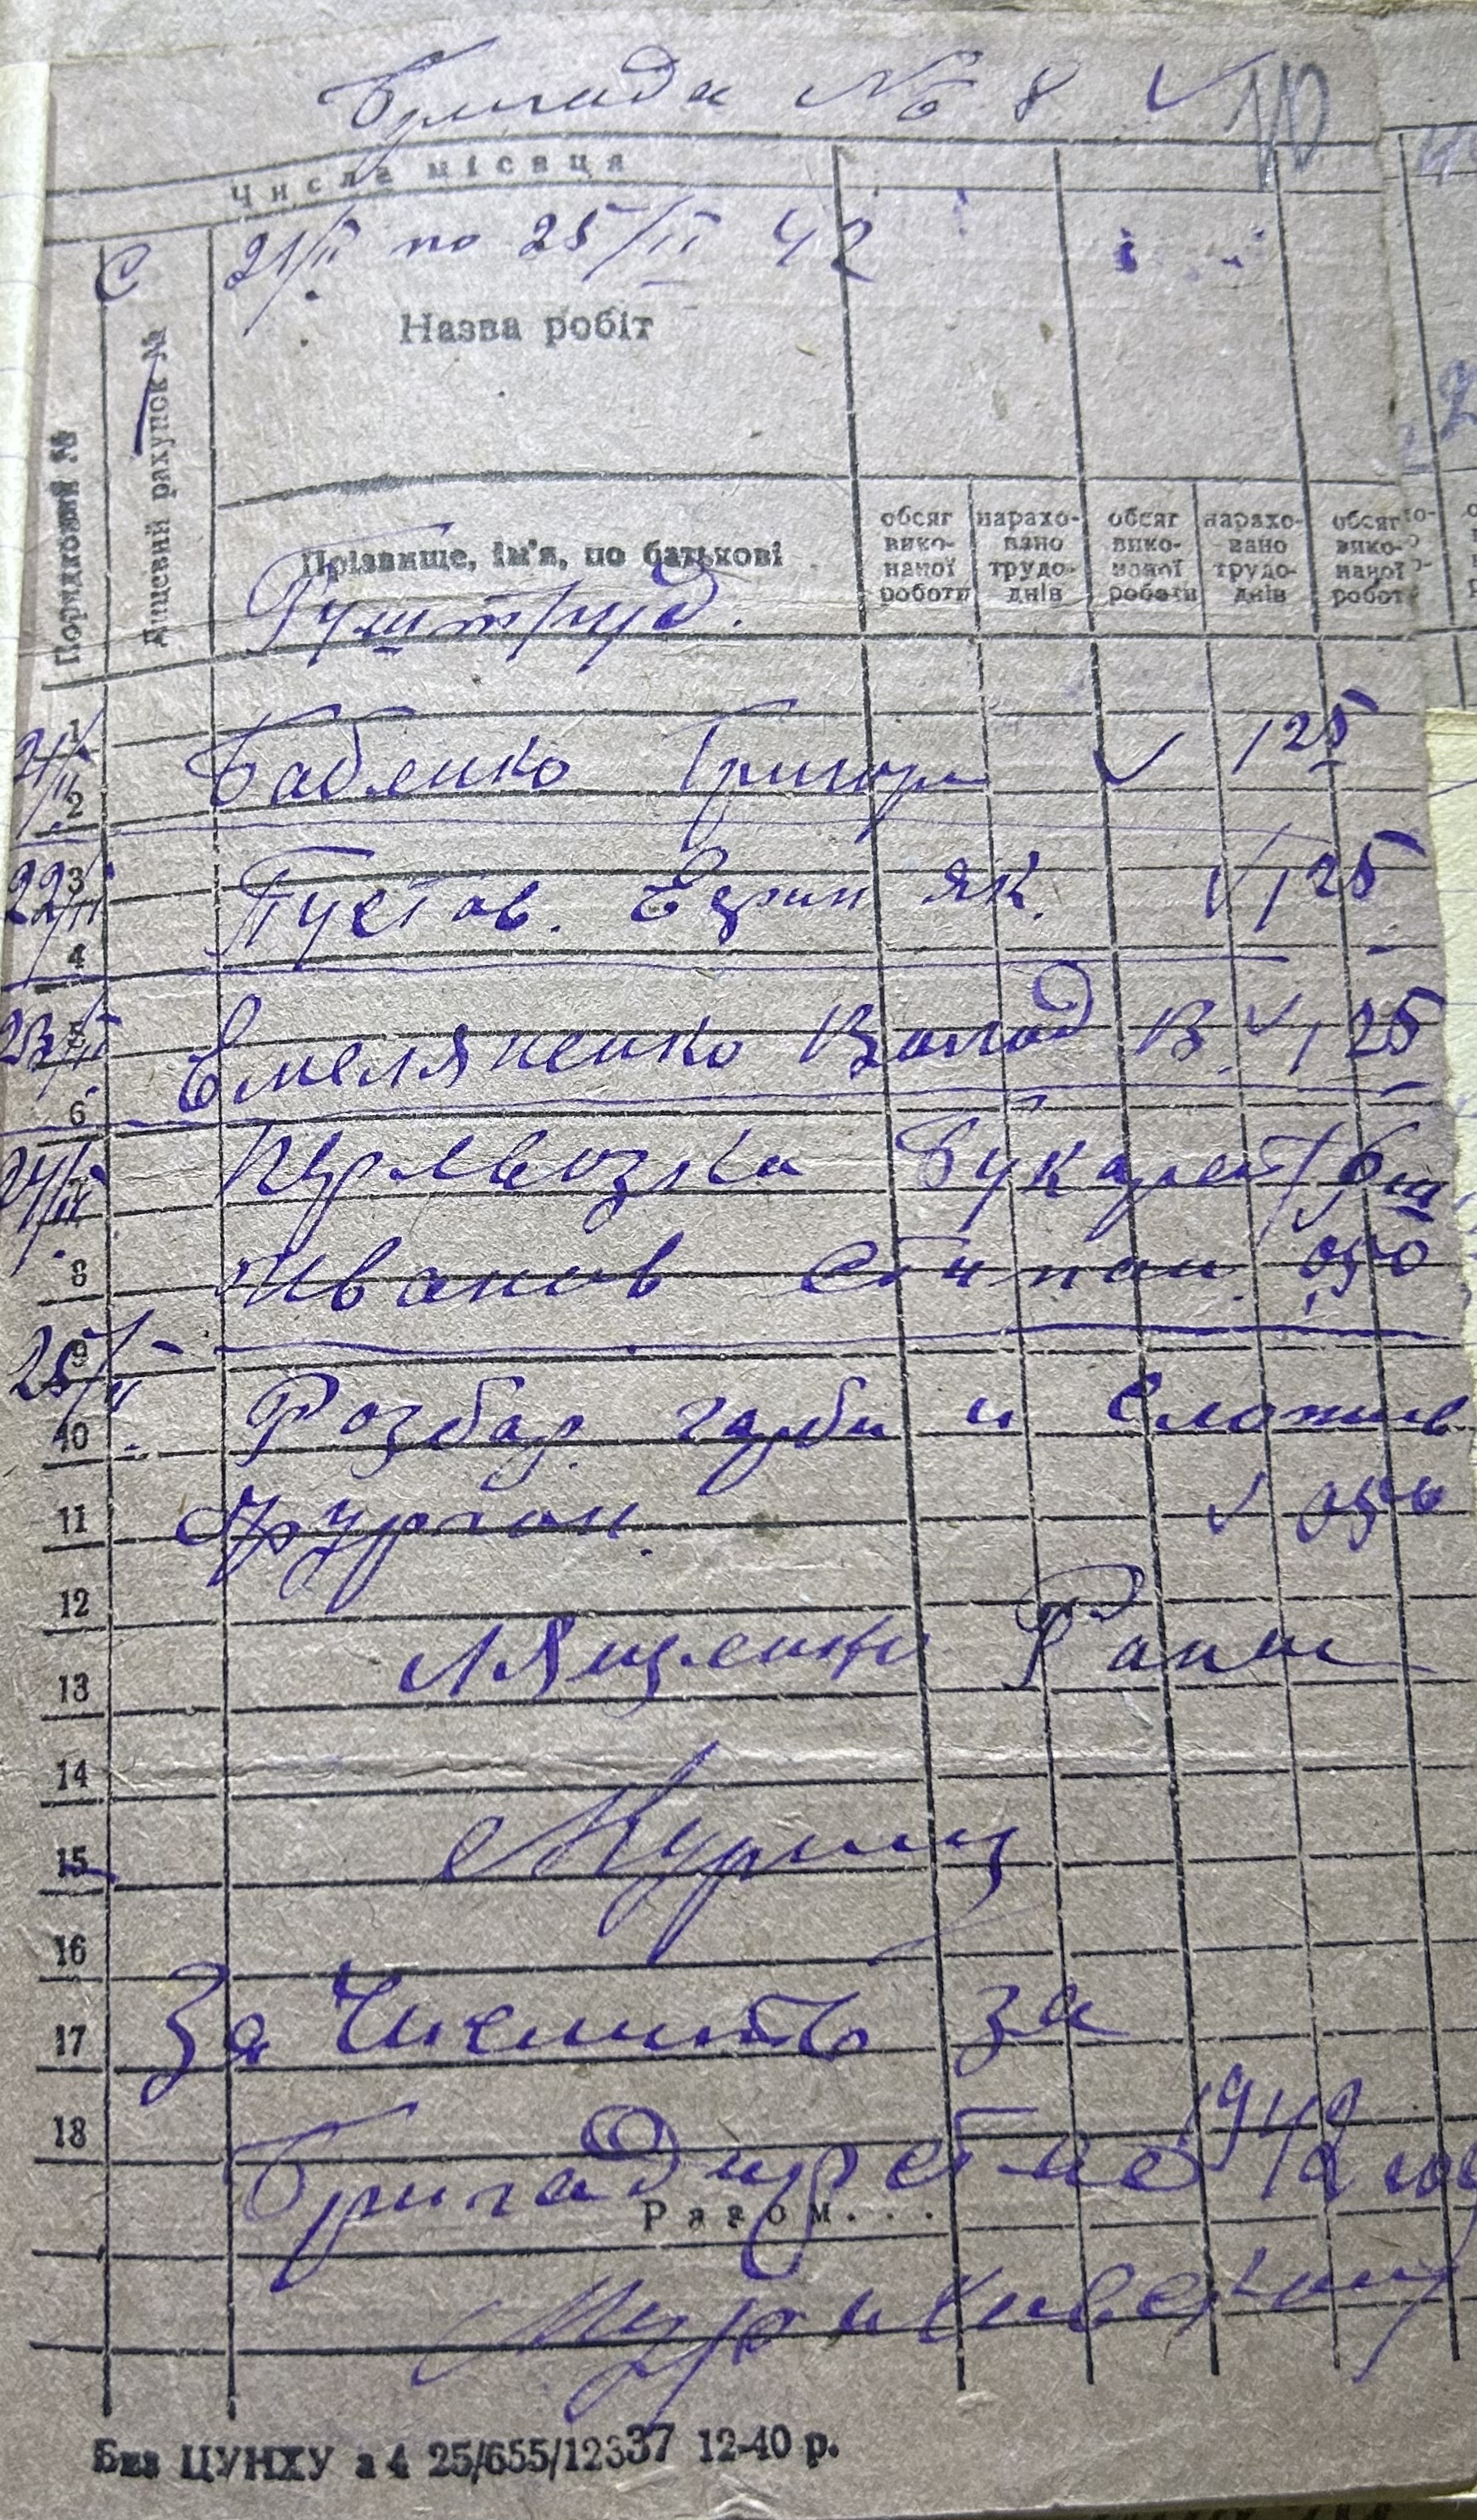 Бригада № 8
Числа місяця
С 21/II по 25/II 42
Назва робіт
Порядковий №
Лицевий рахунок №
Прізвище, ім'я, по батькові
обсяг вико-наної роботи
нарахо-вано трудо-днів
обсяг вико-наної роботи
нарахо-вано трудо-днів
обсяг вико-наної робот
1
21/II Бабенко Григор 125
2
22/II 3 Пустов. Ефим Як. 125
4
23/II 5 Емеляненко Волод В. 125
6
24/II 7 Перевозка
8 Иванов Степан. 050
25/II 9
10 Розбор гарби и
11 фургон. 050
12
13 Лященко
14
15
16
17 Зачислить за
18 Бригадирство 1942
Разом...
Без ЦУНХУ з 4 25/655/12337 12-40 р.